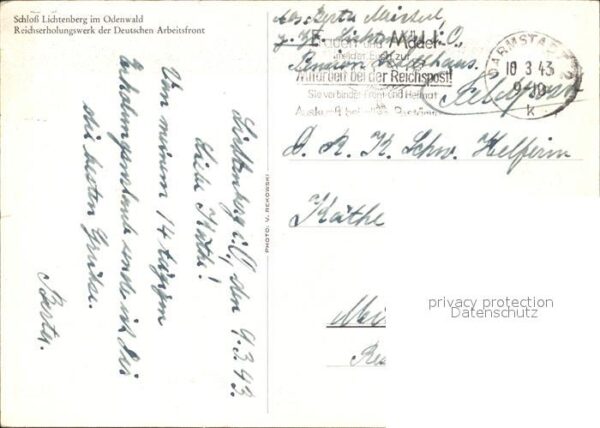 Schloß Lichtenberg im Odenwald
Reichserholungswerk der Deutschen Arbeitsfront
Lichtenberg i. O., den 9.3.43.
Liebe Käthe!
Von meinem 14 tägigen
Erholungsurlaub sende ich Dir
die besten Grüße.
Berta.
PHOTO: V. REKOWSKI
Abs. Berta
Lichtenberg i. O.,
Pension
Frauen und Mädel
Anrufen bei der Reichspost!
Sie verbinden Front und Heimat
DARMSTADT 2
10 3 43
9-10
k
Feldpost
D. R. K. Schw. Helferin
Käthe
privacy protection
Datenschutz